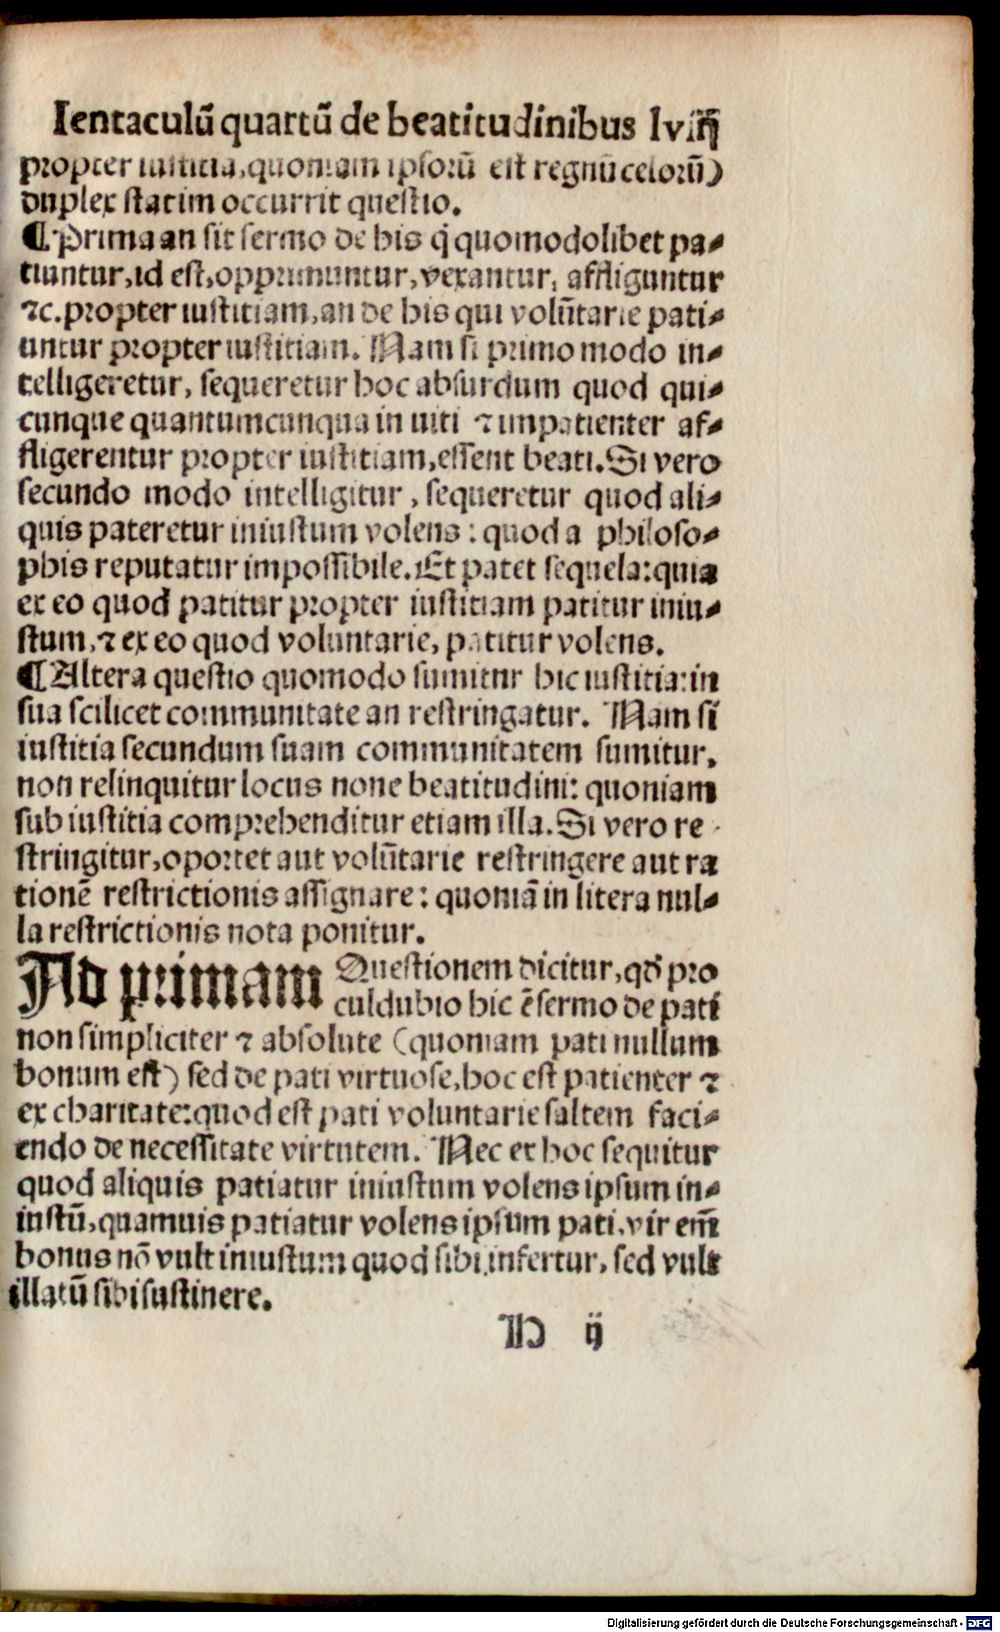 Ientaculū quartū de beatitudinibus lviij
propter iusticia, quoniam ipsorū est regnū celorū)
duplex statim occurrit questio.
¶ Prima an sit sermo de his q̇ quomodolibet pa-
tiuntur, id est, opprimuntur, vexantur, affliguntur
⁊c. propter iustitiam, an de his qui volūtarie pati-
untur propter iustitiam. Nam si primo modo in-
telligeretur, sequeretur hoc absurdum quod qui-
cunque quantumcunqua inuiti ⁊ impatienter af-
fligerentur propter iustitiam, essent beati. Si vero
secundo modo intelligitur, sequeretur quod ali-
quis pateretur iniustum volens: quod a philoso-
phis reputatur impossibile. Et patet sequela: quia
ex eo quod patitur propter iustitiam patitur iniu-
stum, ⁊ ex eo quod voluntarie, patitur volens.
¶ Altera questio quomodo sumitur hic iustitia: in
sua scilicet communitate an restringatur. Nam si
iustitia secundum suam communitatem sumitur,
non relinquitur locus none beatitudini: quoniam
sub iustitia comprehenditur etiam illa. Si vero re-
stringitur, oportet aut volūtarie restringere aut ra
tionē restrictionis assignare: quoniā in litera nul-
la restrictionis nota ponitur.
Ad primam Questionem dicitur, qd̄ pro
culdubio hic ē sermo de pati
non simpliciter ⁊ absolute (quoniam pati nullum
bonum est) sed de pati virtuose, hoc est patienter ⁊
ex charitate: quod est pati voluntarie saltem faci-
endo de necessitate virtutem. Nec ex hoc sequitur
quod aliquis patiatur iniustum volens ipsum in-
iustū, quamuis patiatur volens ipsum pati. vir em̄
bonus nō vult iniustum quod sibi infertur, sed vult
illatū sibi sustinere.
H ij
Digitalisierung gefördert durch die Deutsche Forschungsgemeinschaft - DFG